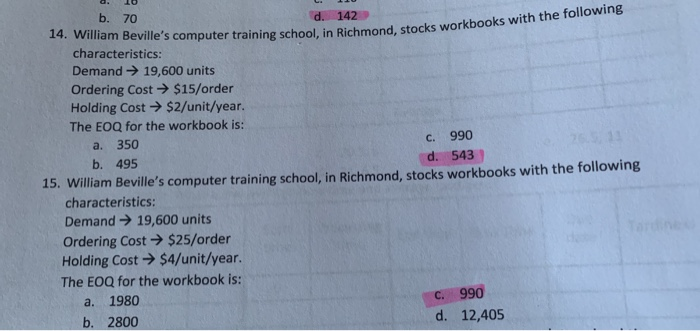 b. 70
d. 142
14. William Beville's computer training school, in Richmond, stocks workbooks with the following
characteristics:
Demand → 19,600 units
Ordering Cost → $15/order
Holding Cost → $2/unit/year.
The EOQ for the workbook is:
a. 350
c. 990
b. 495
d. 543
15. William Beville's computer training school, in Richmond, stocks workbooks with the following
characteristics:
Demand → 19,600 units
Ordering Cost → $25/order
Holding Cost → $4/unit/year.
The EOQ for the workbook is:
a. 1980
c. 990
b. 2800
d. 12,405